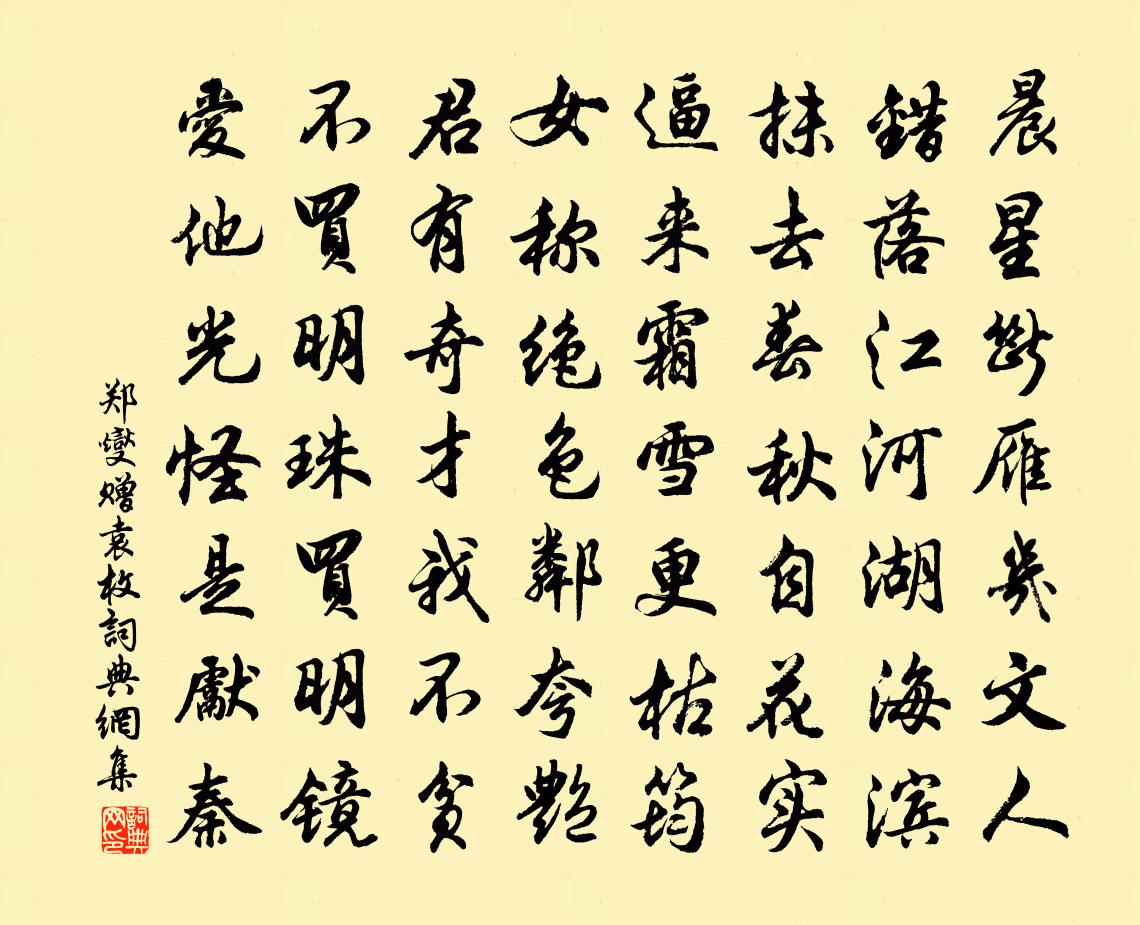 晨星斷雁幾文人
錯落江河湖海滨
抹去春秋自花实
逼来霜雪更枯筠
女称绝色鄰夸艷
君有奇才我不贫
不買明珠買明镜
愛他光怪是獻秦
郑燮赠袁枚詞典網集
詞典网印